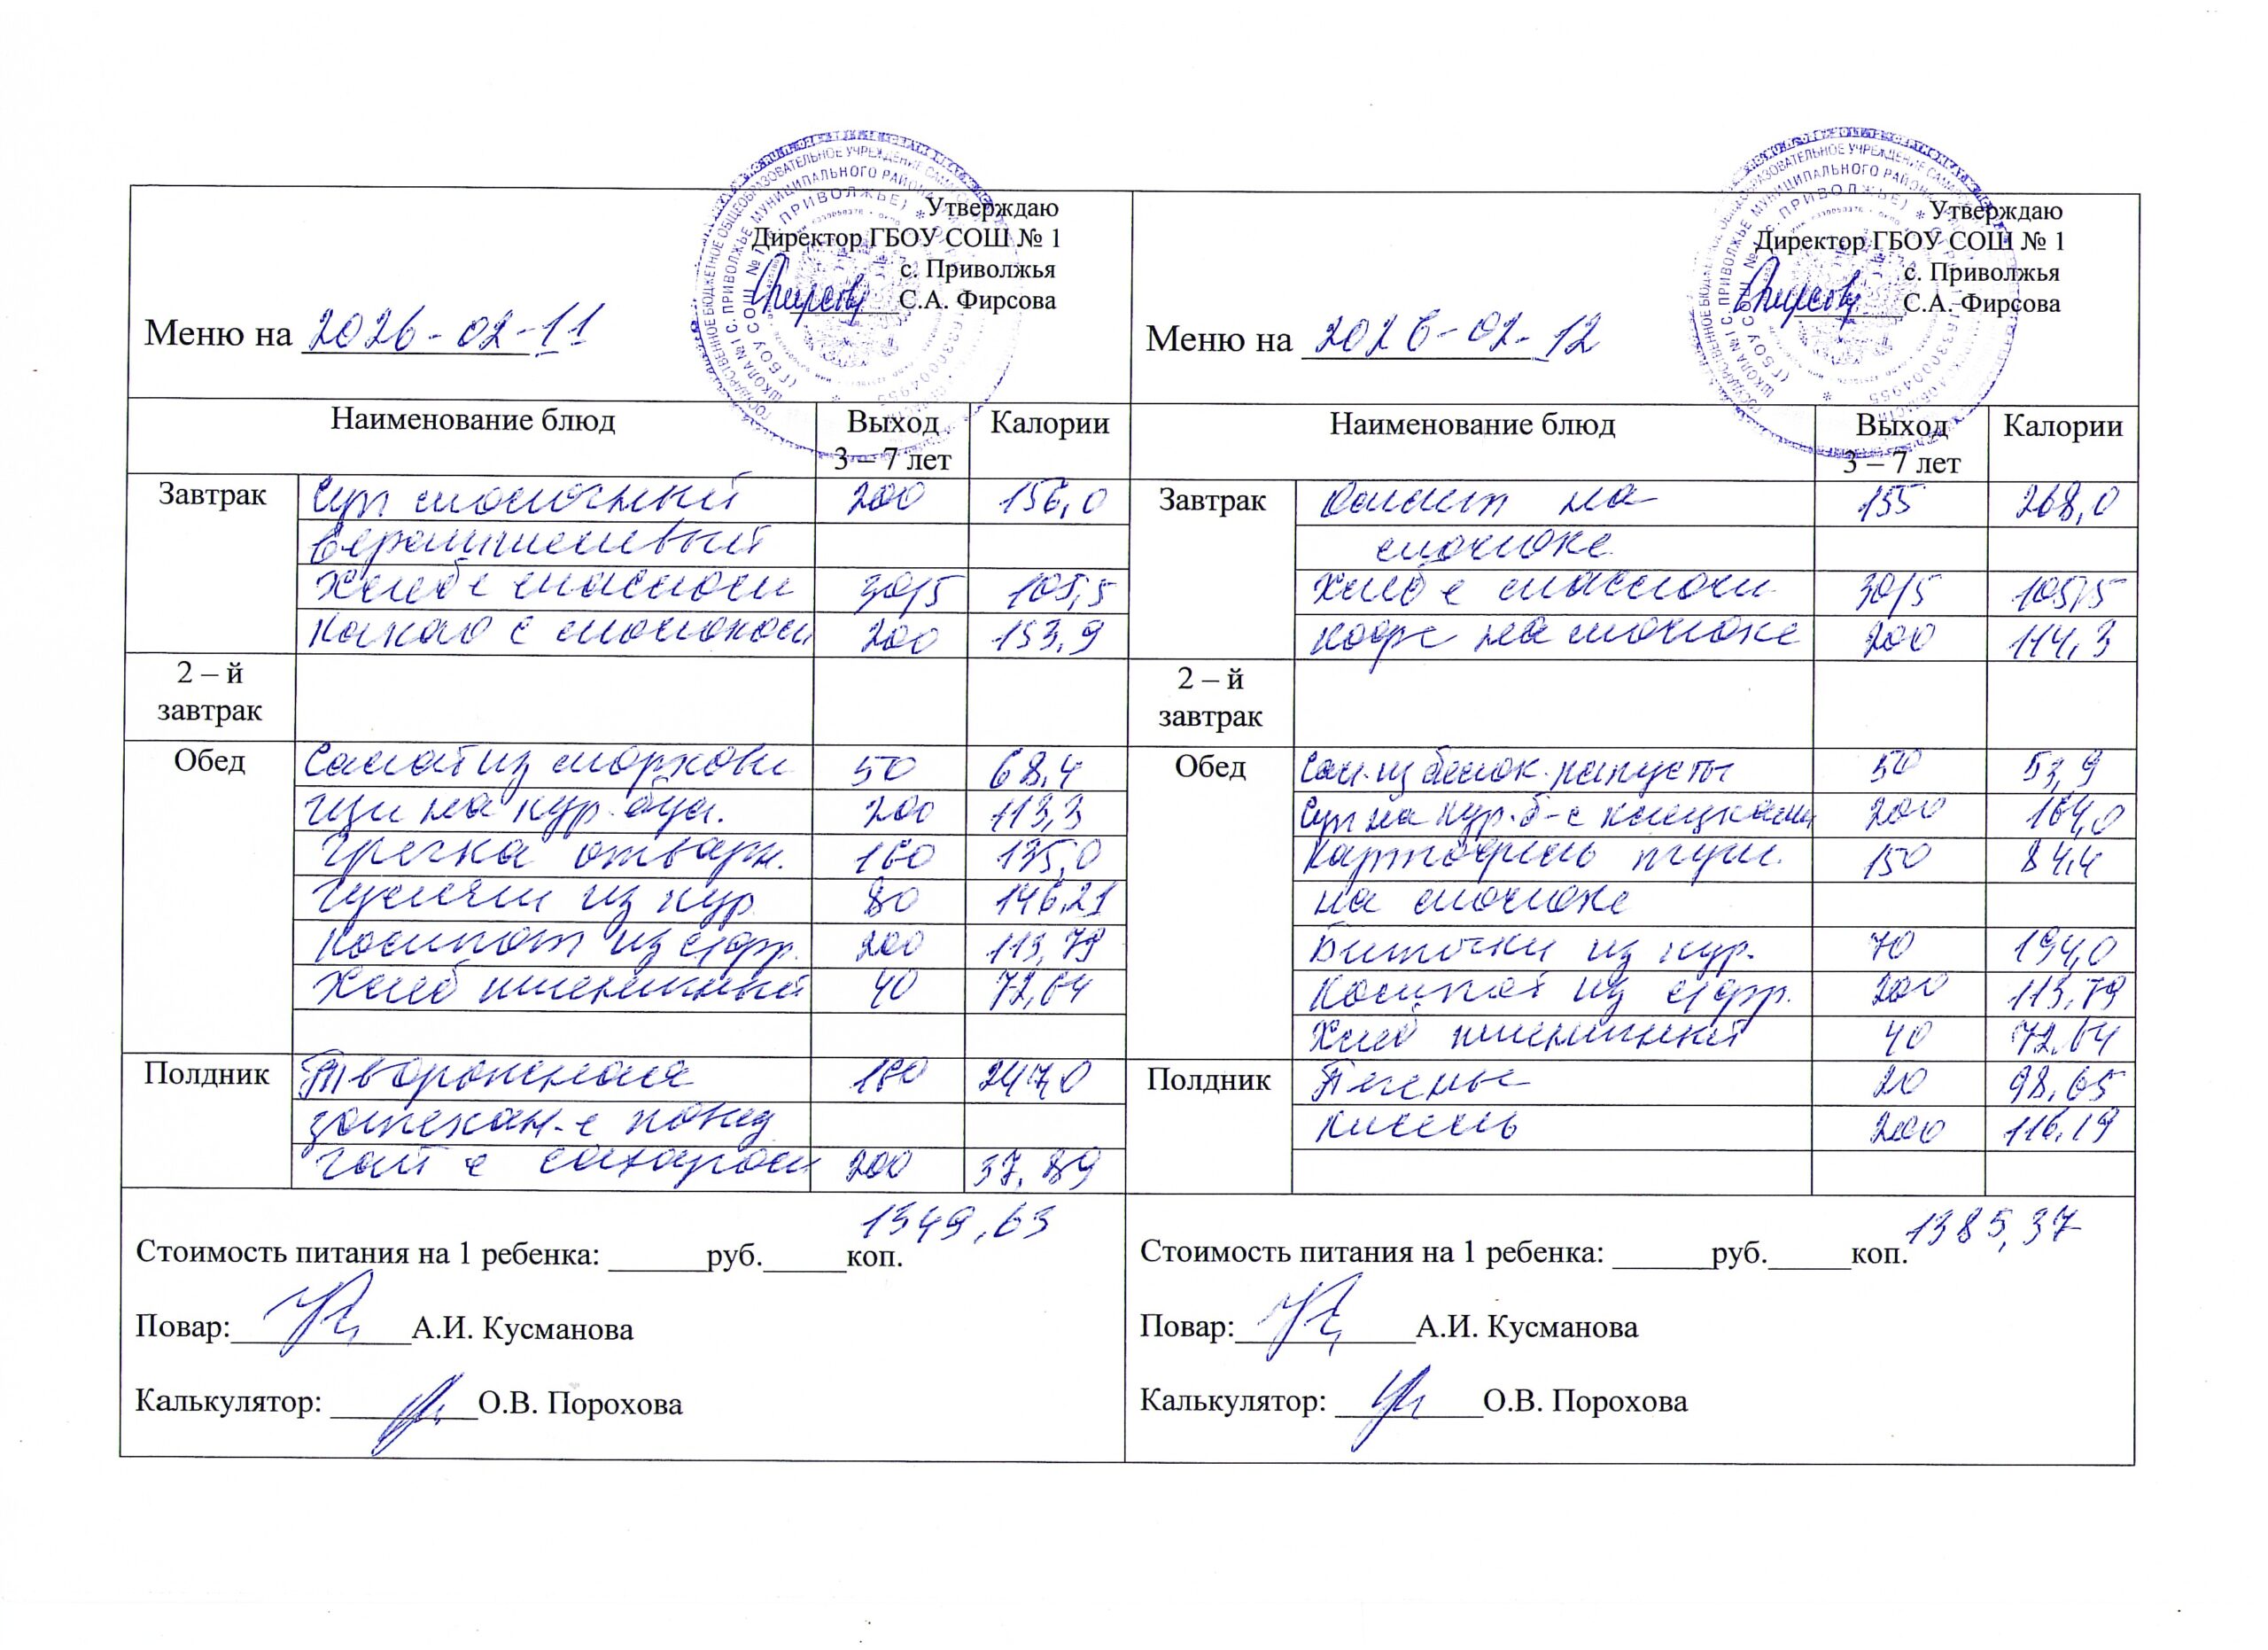 Утверждаю
Директор ГБОУ СОШ № 1
с. Приволжья
С.А. Фирсова
Меню на 2026-02-11
Наименование блюд Выход 3 – 7 лет Калории
Завтрак Суп молочный 200 156,0
вермишелевый
Хлеб с маслом 30/5 105,5
Какао с молоком 200 153,9
2 – й завтрак
Обед Салат из моркови 50 68,4
Щи на кур. бул. 200 113,3
Гречка отварн. 160 135,0
Гуляш из кур 80 146,21
Компот из с/фр. 200 113,79
Хлеб пшеничный 40 72,64
Полдник Творожная 180 247,0
запекан. с повид
Чай с сахаром 200 37,89
1349,63
Стоимость питания на 1 ребенка: руб. коп.
Повар: А.И. Кусманова
Калькулятор: О.В. Порохова
Утверждаю
Директор ГБОУ СОШ № 1
с. Приволжья
С.А. Фирсова
Меню на 2026-02-12
Наименование блюд Выход 3 – 7 лет Калории
Завтрак Омлет на 155 268,0
молоке
Хлеб с маслом 30/5 105,5
Кофе на молоке 200 114,3
2 – й завтрак
Обед Сал. из белок. капусты 50 53,9
Суп на кур. б-е с клецками 200 164,0
Картофель туш. 150 84,4
на молоке
Биточки из кур. 70 194,0
Компот из с/фр. 200 113,79
Хлеб пшеничный 40 72,64
Полдник Печенье 20 98,65
Кисель 200 116,19
1385,37
Стоимость питания на 1 ребенка: руб. коп.
Повар: А.И. Кусманова
Калькулятор: О.В. Порохова